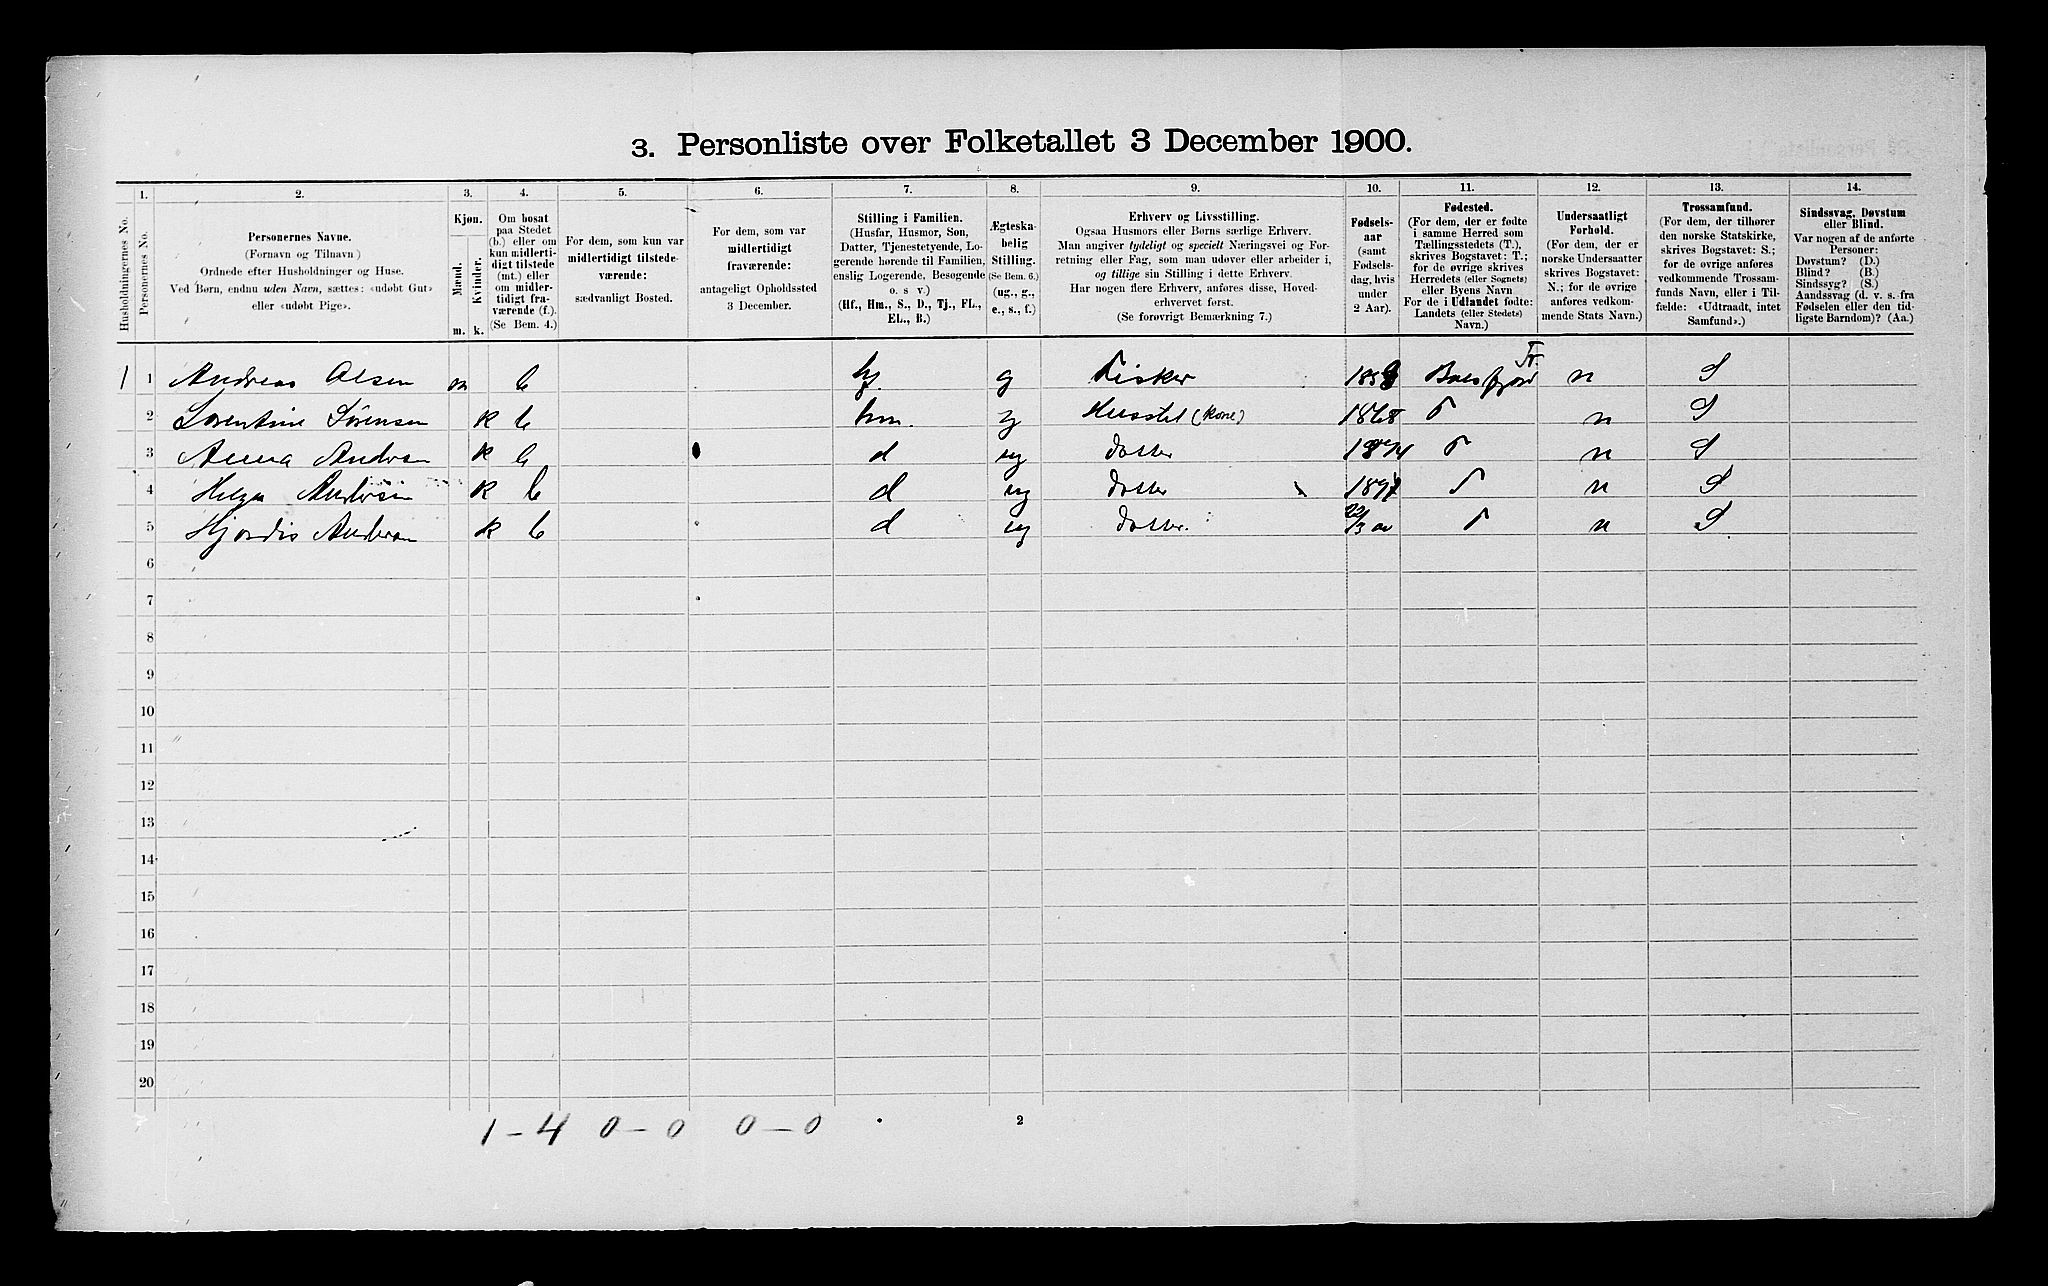 3. Personliste over Folketallet 3 December 1900.
1. 2. 3. 4. 5. 6. 7. 8. 9. 10. 11. 12. 13. 14.
Husholdningernes No.
Personernes No.
Personernes Navne.
(Fornavn og Tilnavn)
Ordnede efter Husholdninger og Huse.
Ved Børn, endnu uden Navn, sættes: «udøbt Gut»
eller «udøbt Pige».
Kjøn.
Mænd.
Kvinder.
m. k.
Om bosat
paa Stedet
(b.) eller om
kun midlerti-
digt tilstede
(mt.) eller
om midler-
tidigt fra-
værende (f.).
(Se Bem. 4.)
For dem, som kun var
midlertidigt tilstede-
værende:
sædvanligt Bosted.
For dem, som var
midlertidigt
fraværende:
antageligt Opholdssted
3 December.
Stilling i Familien.
(Husfar, Husmor, Søn,
Datter, Tjenestetyende, Lo-
gerende hørende til Familien,
enslig Logerende, Besøgende
o. s v.)
(Hf., Hm., S., D., Tj., FL.,
EL., B.)
Ægteska-
belig
Stilling.
(Se Bem. 6.)
(ug., g.,
e., s., f.)
Erhverv og Livsstilling.
Ogsaa Husmors eller Børns særlige Erhverv.
Man angiver tydeligt og specielt Næringsvei og For-
retning eller Fag, som man udøver eller arbeider i,
og tillige sin Stilling i dette Erhverv.
Har nogen flere Erhverv, anføres disse, Hoved-
erhvervet først.
(Se forøvrigt Bemærkning 7.)
Fødsels-
aar
(samt
Fødsels-
dag, hvis
under
2 Aar).
Fødested.
(For dem, der er fødte
i samme Herred som
Tællingsstedets (T.),
skrives Bogstavet: T.;
for de øvrige skrives
Herredets (eller Sognets)
eller Byens Navn
For de i Udlandet fødte:
Landets (eller Stedets)
Navn.)
Undersaatligt
Forhold.
(For dem, der er
norske Undersaatter
skrives Bogstavet:
N.; for de øvrige
anføres vedkom-
mende Stats Navn.)
Trossamfund.
(For dem, der tilhører
den norske Statskirke,
skrives Bogstavet: S.;
for de øvrige anføres
vedkommende Trossam-
funds Navn, eller i Til-
fælde: «Udtraadt, intet
Samfund».)
Sindssvag, Døvstum
eller Blind.
Var nogen af de anførte
Personer:
Døvstum? (D.)
Blind? (B.)
Sindssyg? (S.)
Aandssvag (d. v. s. fra
Fødselen eller den tid-
ligste Barndom)? (Aa.)
1 1 Andreas Olsen m b hf g Fisker Balsfjord Tr. n S
2 Lorentine Sørensen k b hm. g Husstel (kone) 1868 T n S
3 Anna Andersen k b d ug datter T n S
4 Helga Andersen k b d ug datter T n S
5 Hjørdis Andersen k b d ug datter. 22/3 00 T n S
6
7
8
9
10
11
12
13
14
15
16
17
18
19
20
1 - 4 0 - 0 0 - 0 2